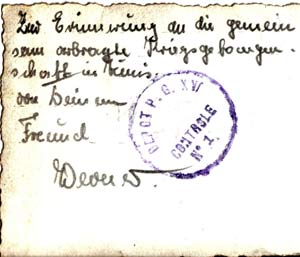 Zur Erinnerung an die gemein
sam verbragte Kriegsgefangen.
schaft in Tunis.
von Deinem
Freund
Werner.
DEPOT P. G. XVI
CONTROLE
N° 1.